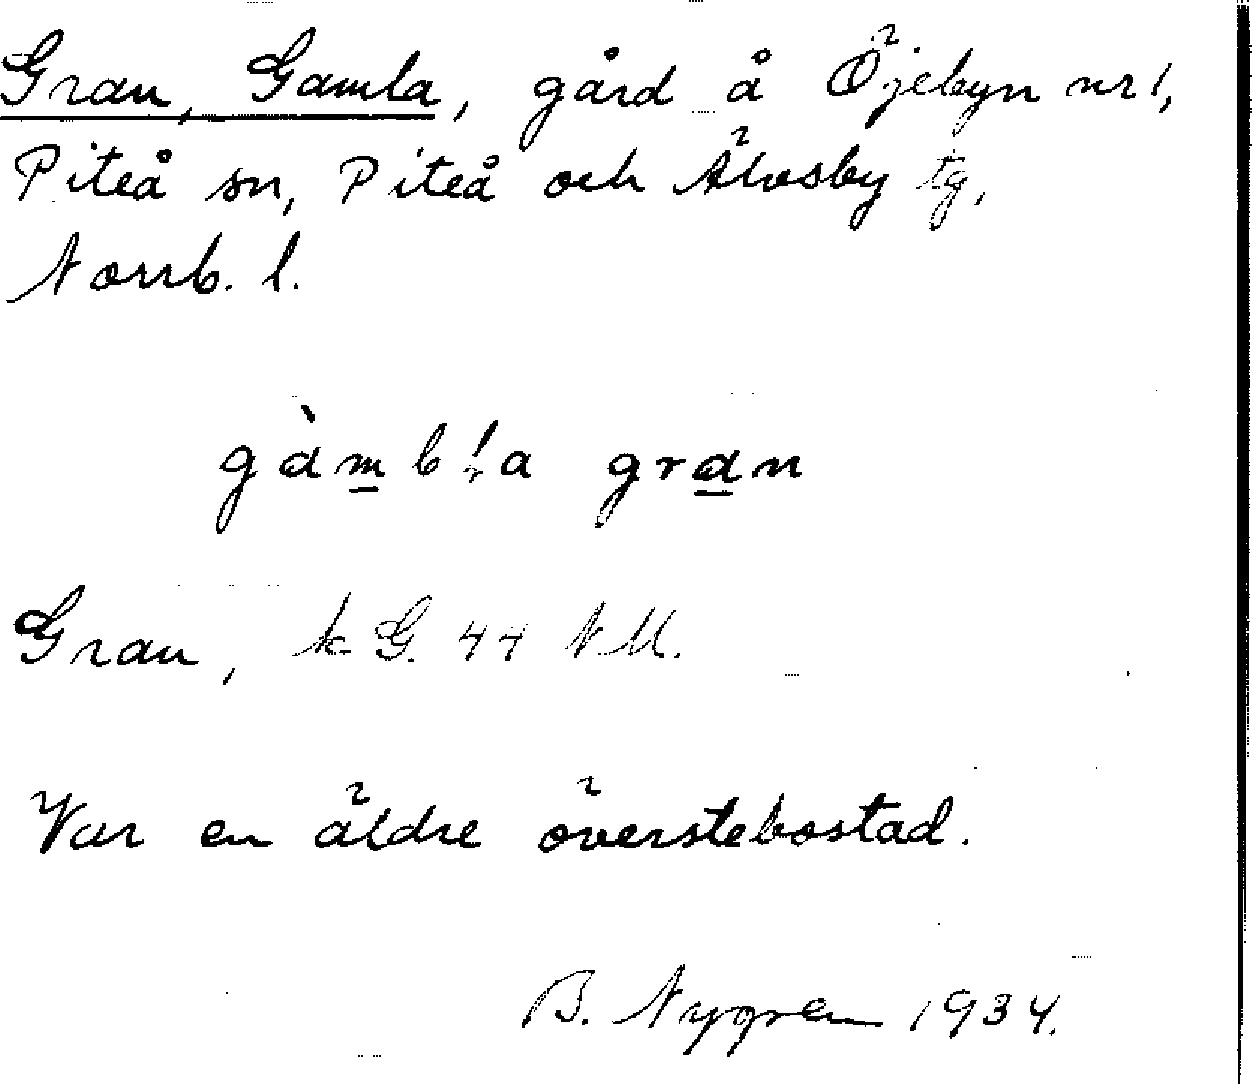 Gran, Gamla, gård å Öjebyn nr 1,
Piteå sn, Piteå och Älvsby tg,
Norrb. l.
gàmbḷa gran
Gran, k G. 44 NM.
Var en äldre överstebostad.
B. Nygren 1934.